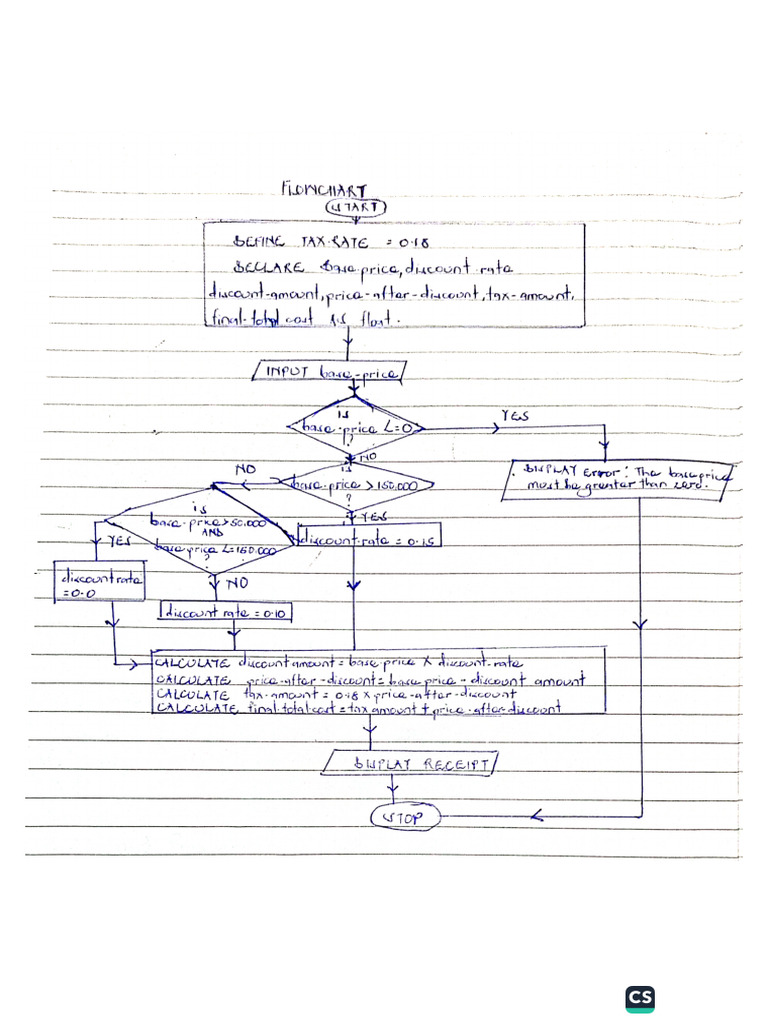 FLOWCHART
START
DEFINE TAX-RATE = 0.18
DECLARE base-price, discount-rate
discount-amount, price-after-discount, tax-amount,
final-total cost as float.
INPUT base-price
is
base-price <=0
?
YES
NO
DISPLAY Error: The base price
must be greater than zero.
is
base-price >150,000
?
NO
YES
is
base-price >50,000
AND
base price <=150,000
?
YES
NO
discount-rate = 0.15
discount rate
=0.0
discount rate =0.10
CALCULATE discount amount = base-price X discount-rate
CALCULATE price-after-discount= base price - discount amount
CALCULATE tax-amount = 0.18 x price-after-discount
CALCULATE final-total-cost = tax amount + price-after-discount
DISPLAY RECEIPT
STOP
CS